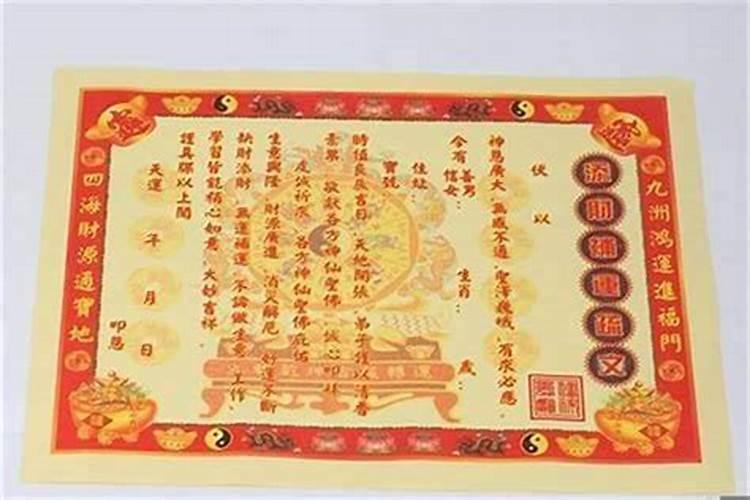 九洲鴻運進福門
添財補運疏文
伏以
神恩廣大 無感不通 聖澤巍峨 有求必應
今有 善男 信女： 生肖： 歲：
住址：
寶號
時值良辰吉日 天地開張 弟子謹以清香
素果 敬獻各方神仙聖佛 誠心叩拜
虔誠祈求 各方神仙聖佛庇佑
生意興隆 財源廣進 消災解厄 好運不斷
缺財添財 無運補運 不論做生意 工作、
學習皆能稱心如意 大妙吉祥
謹具疏以上聞
天運 年 月 日
叩懇
四海財源通寶地